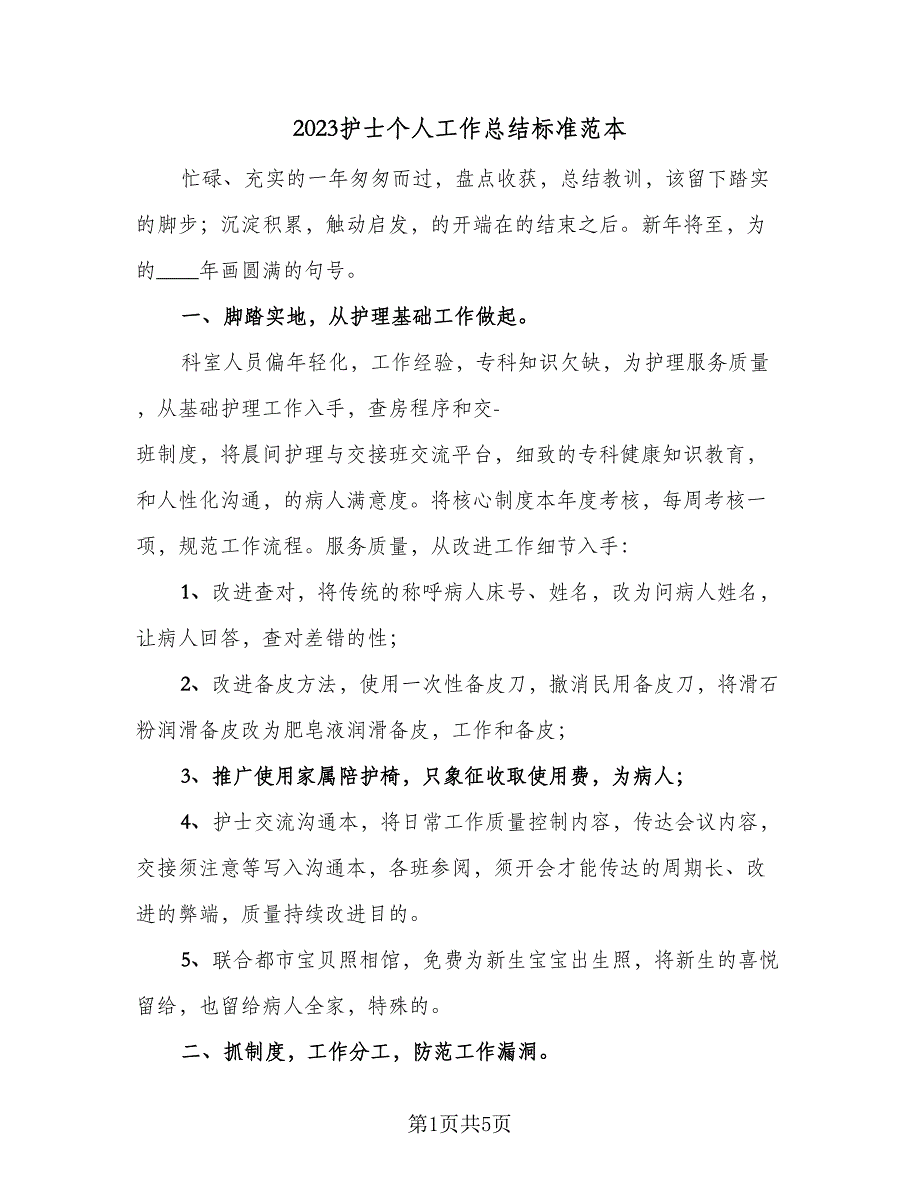 2023护士个人工作总结标准范本
忙碌、充实的一年匆匆而过，盘点收获，总结教训，该留下踏实
的脚步；沉淀积累，触动启发，的开端在的结束之后。新年将至，为
的____年画圆满的句号。
一、脚踏实地，从护理基础工作做起。
科室人员偏年轻化，工作经验，专科知识欠缺，为护理服务质量
，从基础护理工作入手，查房程序和交-
班制度，将晨间护理与交接班交流平台，细致的专科健康知识教育，
和人性化沟通，的病人满意度。将核心制度本年度考核，每周考核一
项，规范工作流程。服务质量，从改进工作细节入手：
1、改进查对，将传统的称呼病人床号、姓名，改为问病人姓名，
让病人回答，查对差错的性；
2、改进备皮方法，使用一次性备皮刀，撤消民用备皮刀，将滑石
粉润滑备皮改为肥皂液润滑备皮，工作和备皮；
3、推广使用家属陪护椅，只象征收取使用费，为病人；
4、护士交流沟通本，将日常工作质量控制内容，传达会议内容，
交接须注意等写入沟通本，各班参阅，须开会才能传达的周期长、改
进的弊端，质量持续改进目的。
5、联合都市宝贝照相馆，免费为新生宝宝出生照，将新生的喜悦
留给，也留给病人全家，特殊的。
二、抓制度，工作分工，防范工作漏洞。
第1页共5页